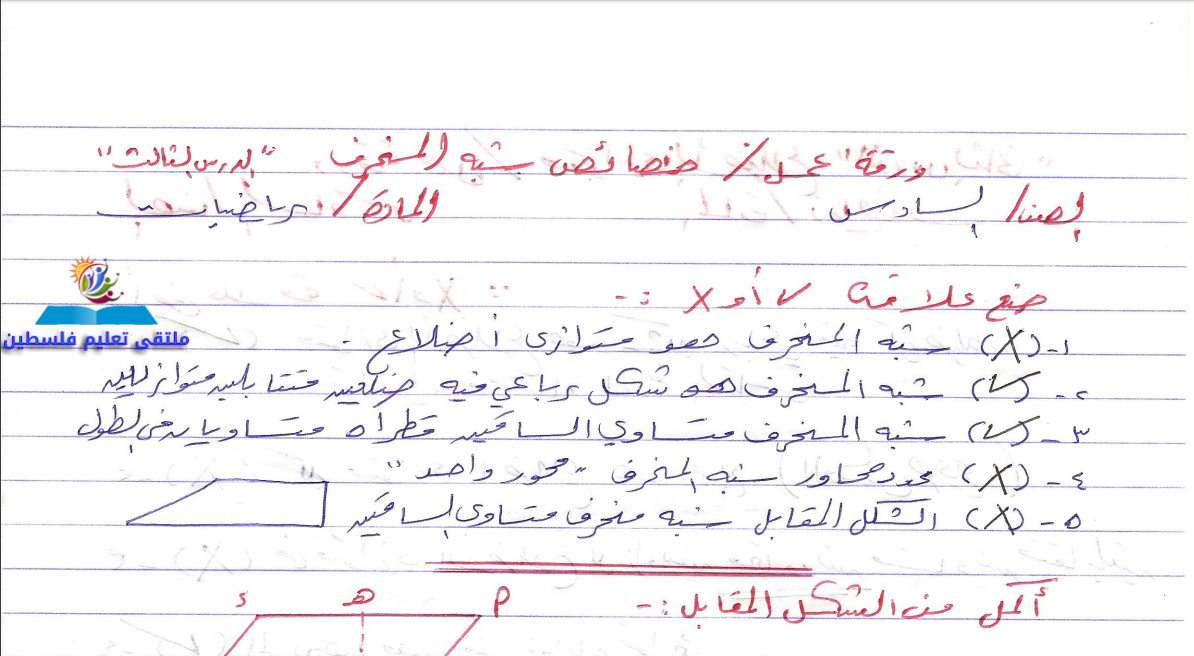 ورقة عمل / خصائص شبه المنحرف "الدرس الثالث"
الصف / السادس المادة / رياضيات
ضع علامة ✓ أو X :-
١- (X) شبه المنحرف هو متوازي أضلاع .
٢- (✓) شبه المنحرف هو شكل رباعي فيه ضلعين متقابلين متوازيين
٣- (✓) شبه المنحرف متساوي الساقين قطراه متساويان في الطول
٤- (X) عدد محاور شبه المنحرف "محور واحد"
٥- (X) الشكل المقابل شبه منحرف متساوي الساقين
أكمل من الشكل المقابل :-
أ هـ د
ملتقى تعليم فلسطين